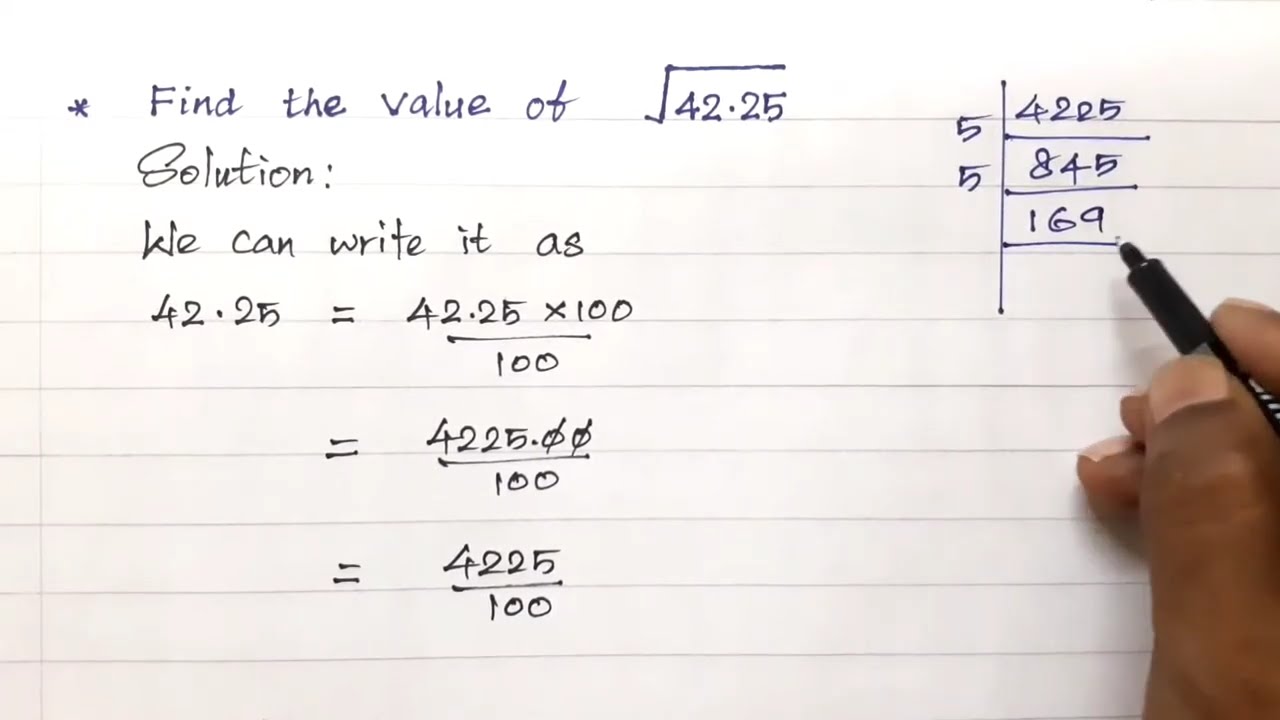 * Find the value of √42.25
Solution:
We can write it as
42.25 = 42.25 ×100
100
= 4225.00
100
= 4225
100
5 4225
5 845
169